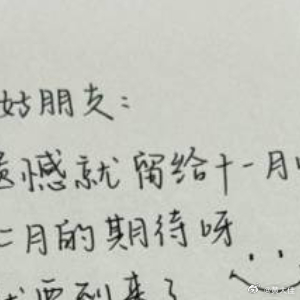 好朋友：
遗憾就留给十一月
二月的期待呀
要到来了